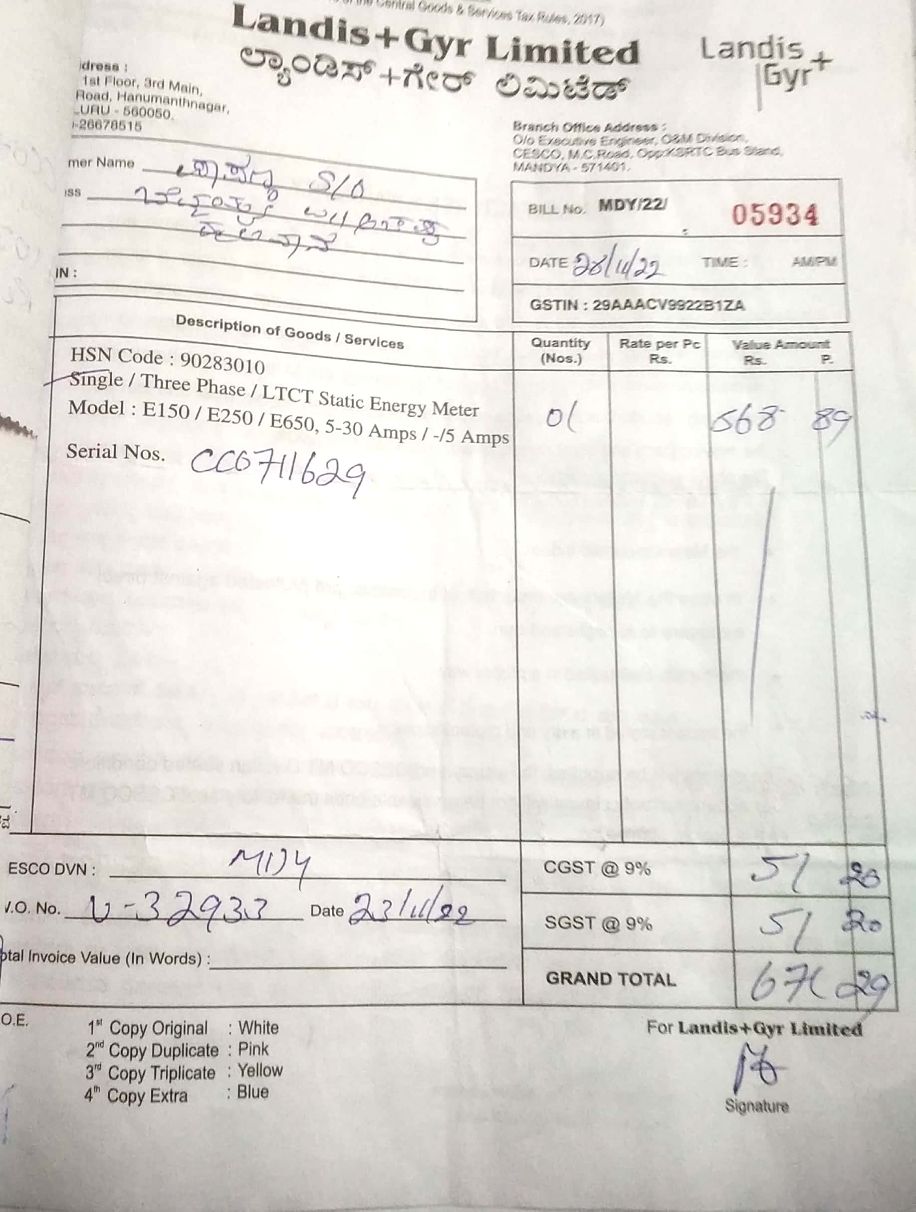 of the Central Goods & Services Tax Rules, 2017)
Landis+Gyr Limited
ಲ್ಯಾಂಡಿಸ್+ಗೇರ್ ಲಿಮಿಟೆಡ್
Landis+
Gyr
dress :
1st Floor, 3rd Main,
Road, Hanumanthnagar,
URU - 560050.
-26678515
Branch Office Address :
O/o Executive Engineer, O&M Division,
CESCO, M.C.Road, Opp:KSRTC Bus Stand,
MANDYA - 571401.
mer Name S/O
ss
IN :
BILL No. MDY/22/ 05934
DATE 28/11/22 TIME : AM/PM
GSTIN : 29AAACV9922B1ZA
Description of Goods / Services
Quantity (Nos.)
Rate per Pc Rs.
Value Amount Rs. P.
HSN Code : 90283010
Single / Three Phase / LTCT Static Energy Meter
Model : E150 / E250 / E650, 5-30 Amps / -/5 Amps
01 568 89
Serial Nos. CC6711629
ESCO DVN : MDY
CGST @ 9% 51 20
V.O. No. N-32933 Date 23/11/22
SGST @ 9% 51 20
otal Invoice Value (In Words) :
GRAND TOTAL 671 29
.O.E.
1st Copy Original : White
2nd Copy Duplicate : Pink
3rd Copy Triplicate : Yellow
4th Copy Extra : Blue
For Landis+Gyr Limited
Signature